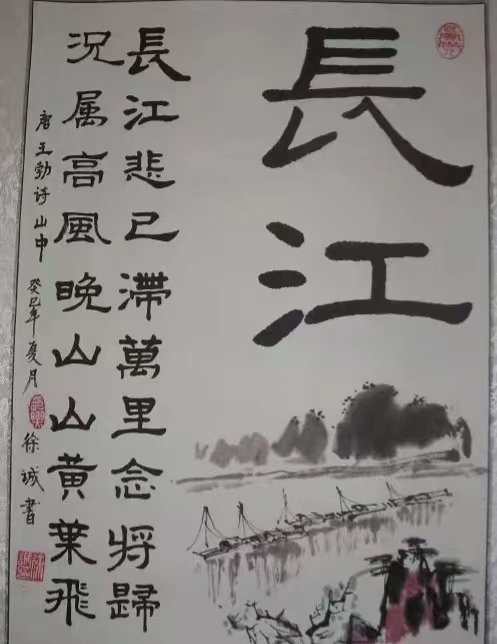 長江
長江悲已滯萬里念将歸
况属高風晚山山黄葉飛
唐王勃诗山中 癸巳年夏月
徐诚書